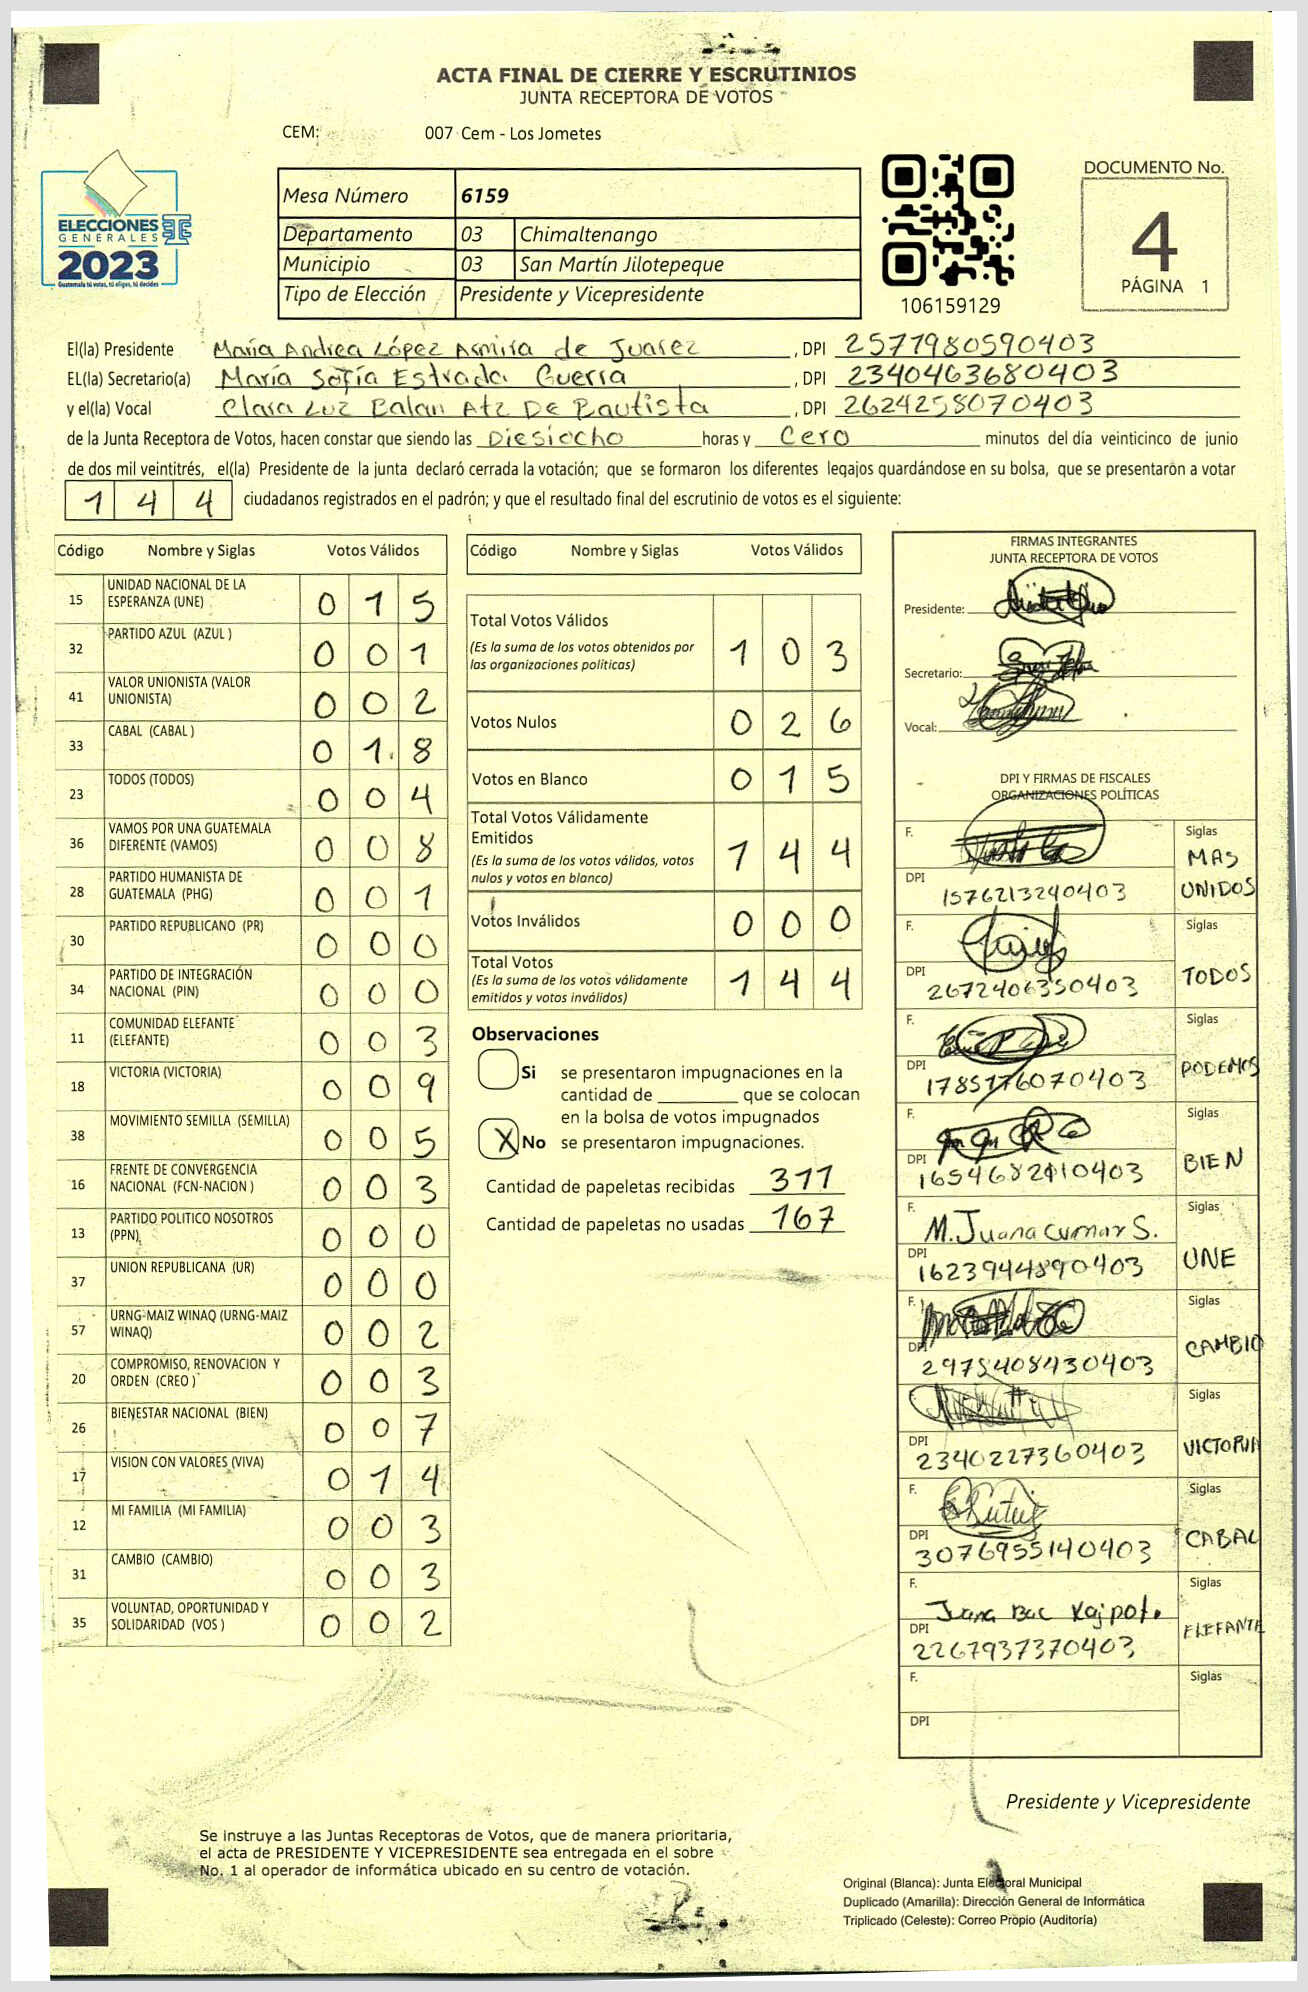 ACTA FINAL DE CIERRE Y ESCRUTINIOS
JUNTA RECEPTORA DE VOTOS
CEM: 007 Cem - Los Jometes
ELECCIONES
GENERALES
2023
Guatemala tú votas, tú eliges, tú decides
Mesa Número 6159
Departamento 03 Chimaltenango
Municipio 03 San Martín Jilotepeque
Tipo de Elección Presidente y Vicepresidente
106159129
DOCUMENTO No.
4
PÁGINA 1
El(la) Presidente María Andrea López Armira de Juarez, DPI 2577980590403
EL(la) Secretario(a) María Sofía Estrada Guerra, DPI 2340463680403
y el(la) Vocal Clara Luz Balan Atz De Bautista, DPI 2624258070403
de la Junta Receptora de Votos, hacen constar que siendo las Diesiocho horas y Cero minutos del día veinticinco de junio
de dos mil veintitrés, el(la) Presidente de la junta declaró cerrada la votación; que se formaron los diferentes legajos guardándose en su bolsa, que se presentaron a votar
144 ciudadanos registrados en el padrón; y que el resultado final del escrutinio de votos es el siguiente:
Código Nombre y Siglas Votos Válidos
15 UNIDAD NACIONAL DE LA ESPERANZA (UNE) 015
32 PARTIDO AZUL (AZUL ) 001
41 VALOR UNIONISTA (VALOR UNIONISTA) 002
33 CABAL (CABAL ) 018
23 TODOS (TODOS) 004
36 VAMOS POR UNA GUATEMALA DIFERENTE (VAMOS) 008
28 PARTIDO HUMANISTA DE GUATEMALA (PHG) 001
30 PARTIDO REPUBLICANO (PR) 000
34 PARTIDO DE INTEGRACIÓN NACIONAL (PIN) 000
11 COMUNIDAD ELEFANTE (ELEFANTE) 003
18 VICTORIA (VICTORIA) 009
38 MOVIMIENTO SEMILLA (SEMILLA) 005
16 FRENTE DE CONVERGENCIA NACIONAL (FCN-NACION ) 003
13 PARTIDO POLITICO NOSOTROS (PPN) 000
37 UNION REPUBLICANA (UR) 000
57 URNG-MAIZ WINAQ (URNG-MAIZ WINAQ) 002
20 COMPROMISO, RENOVACION Y ORDEN (CREO ) 003
26 BIENESTAR NACIONAL (BIEN) 007
17 VISION CON VALORES (VIVA) 014
12 MI FAMILIA (MI FAMILIA) 003
31 CAMBIO (CAMBIO) 003
35 VOLUNTAD, OPORTUNIDAD Y SOLIDARIDAD (VOS ) 002
Código Nombre y Siglas Votos Válidos
Total Votos Válidos 103
(Es la suma de los votos obtenidos por
las organizaciones políticas)
Votos Nulos 026
Votos en Blanco 015
Total Votos Válidamente
Emitidos 144
(Es la suma de los votos válidos, votos
nulos y votos en blanco)
Votos Inválidos 000
Total Votos 144
(Es la suma de los votos válidamente
emitidos y votos inválidos)
Observaciones
Si se presentaron impugnaciones en la
cantidad de ________ que se colocan
en la bolsa de votos impugnados
X No se presentaron impugnaciones.
Cantidad de papeletas recibidas 311
Cantidad de papeletas no usadas 167
FIRMAS INTEGRANTES
JUNTA RECEPTORA DE VOTOS
Presidente:
Secretario:
Vocal:
DPI Y FIRMAS DE FISCALES
ORGANIZACIONES POLÍTICAS
F. Siglas
MAS
UNIDOS
DPI 1576213240403
F. Siglas
TODOS
DPI 2672406350403
F. Siglas
PODEMOS
DPI 1785176070403
F. Siglas
BIEN
DPI 1654682410403
F. M. Juana Cumar S. Siglas
UNE
DPI 1623944890403
F. Siglas
CAMBIO
DPI 2975408430403
F. Siglas
VICTORIA
DPI 2340227360403
F. Siglas
CABAL
DPI 3076955140403
F. Juana Bac Xajpot. Siglas
ELEFANTE
DPI 2267937370403
F. Siglas
DPI
Presidente y Vicepresidente
Se instruye a las Juntas Receptoras de Votos, que de manera prioritaria,
el acta de PRESIDENTE Y VICEPRESIDENTE sea entregada en el sobre
No. 1 al operador de informática ubicado en su centro de votación.
Original (Blanca): Junta Electoral Municipal
Duplicado (Amarilla): Dirección General de Informática
Triplicado (Celeste): Correo Propio (Auditoría)